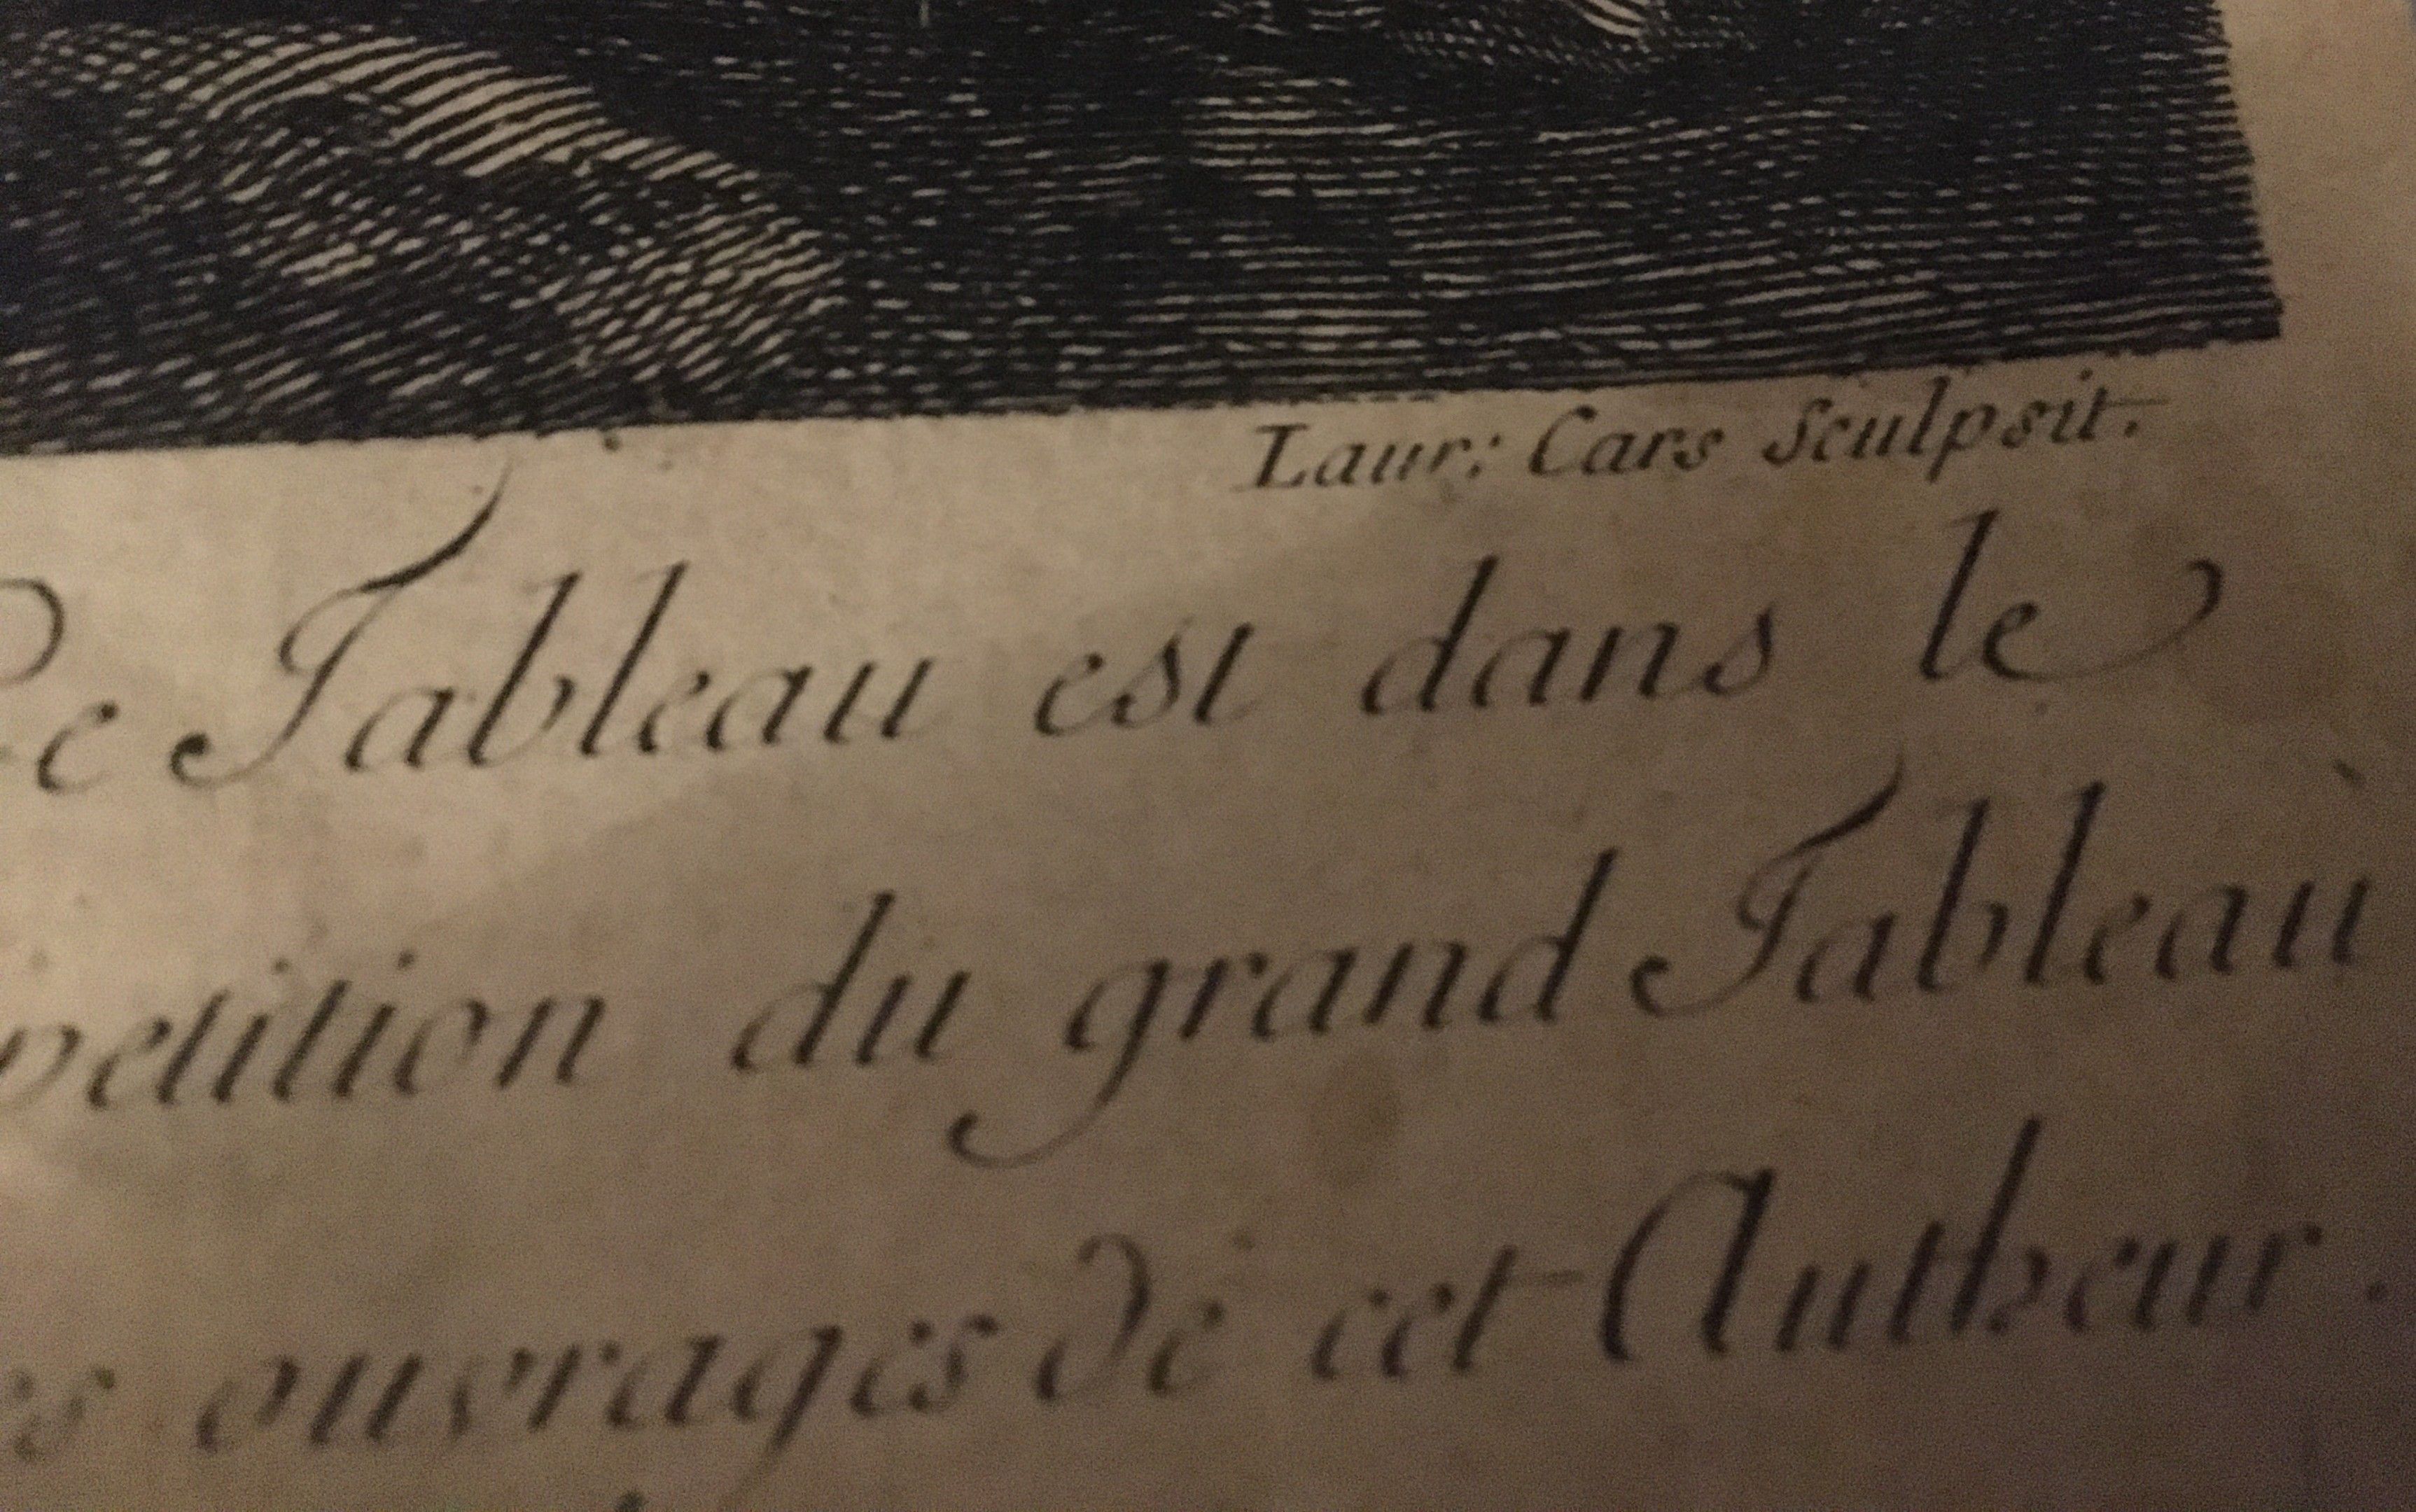 Laur: Cars Sculpsit.
Ce Tableau est dans le
petition du grand Tableau
es ouvrages de cet Autheur.